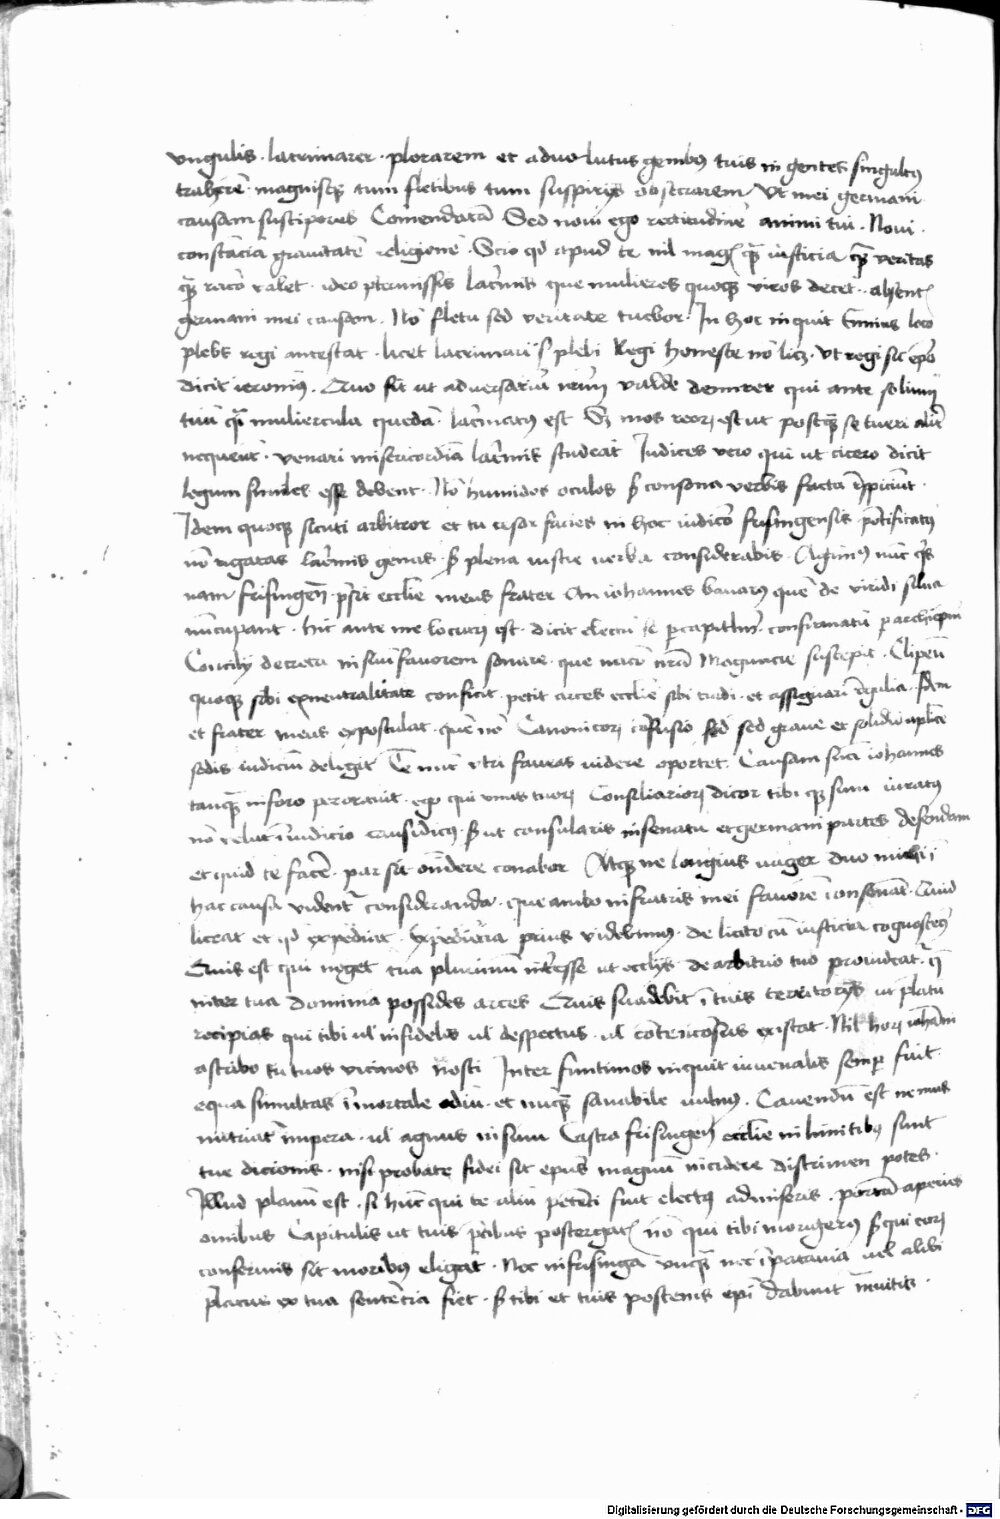 vngulis · lacrimarer · plorarem et aduolutus genibꝰ tuis ingentes singultꝰ
traherē · magnisqꝫ tum fletibus tum suspirijs obsecrarem Vt mei germani
causam susciperes Comendatā Sed noui ego rectitudinē animi tui · Noui ·
constāciā grauitatē religionē · Scio qd apud te nil magꝭ qꝫ iusticia qꝫ veritas
qꝫ racō valet · ideo p̱termissis lacrimis que mulieres quoqꝫ viros decet · absentꝭ
germani mei causam · Nō fletu sed veritate tuebor · In hoc inquit Ennius loco
plebs regi antestat · licet lacrimari plebi Regi honeste nō licꝫ · vt regi sic ep̄o
dicit ieronimꝰ · Quo fit ut aduersariū nr̄m valde demirer qui ante solium
tuū muliercula quedā · lacrimatꝰ est Sꝫ mos reorꝫ est ut postqꝫ se tueri alit̄
nequeūt · venari misericordiā lacrimis studeāt Iudices vero qui ut cicero dicit
legum similes esse debent · Nō humidos oculos sꝫ consona verbis facta respiciūt ·
Idem quoqꝫ sicuti arbitror et tu cesar facies in hoc iudicō frisingensis pōtificatꝰ
nō rigatas lacrimis genas · sꝫ plena iusticie verba considerabis · Agimꝰ nūc qis
nam frisingen̄ presit ecclīe meus frater An iohannes bauarꝰ quē de viridi silua
nūcupant · hic ante me locutꝰ est · dicit electū se p̱ capitulū · confirmatū p̱ archiep̄m
Concilij decreta in suū favorem sonare · que nacō nrā Maguncie suscepit · Clipeū
quoqꝫ sibi ex neutralitate conficit · petit arces ecclīe sibi tradi · et assignari regulia ·
et frater meus expostulat · quē nō Canonicorꝫ sed sed graue et solidū aplīce
sedis iudiciū delegit Te nunc vtri faueas videre oportet · Causam suā iohannes
tanqꝫ in foro perorauit · ego qui vnus tuorꝫ Consiliariorꝫ dicor tibi qꝫ sum iuratus
nō velut ī iudicio causidicꝰ · sꝫ ut consularis in senatu et germani partes defendam
et quid te facere · par sit ondere conabor Atqꝫ ne longius vager duo michi ī
hac causa vidēt̄ consideranda · que ambo in fratris mei fauorē consonāt · Quid
liceat et qd expediat · Expediētia prius videbimus · de licito cū iusticia cognoscemꝰ
Quis est qui neget tua plurimū interesse ut ecclijs de arbitrio tuo prouideat̄ · q̄
inter tua dominia possides arces Quis suadebit ī tuis territorijs ut p̄latū
recipias qui tibi ul infidelis ul despectus · ul existat · Nil horꝫ iohanni
ascribo tu tuos vicinos nosti Inter finitimos inquit iuuenalis semper fuit
equa simultas īmortale odiū · et nūqꝫ sanabile uulnꝰ · Cauendū est ne mus
nutriat̄ ī pera · ul agnus in sinu Castra frisingen̄ ecclīe in limitibꝰ sunt
tue dicionis · nisi probate fidei sit ep̄us magnū incidere discrimen potes ·
Illud planū est · si hūc qui te aliū petēte fuit electꝰ admiseris · portā aperies
omibus Capitulis ut tuis p̄cibus postergatꝭ nō qui tibi morigerꝰ sꝫ qui eorꝫ
conformis sit moribꝰ eligāt · Nec in frisinga vnqꝫ nec ī patauia uel alibi
p̄latus ex tua sentēcia fiet · sꝫ tibi et tuis posteris ep̄i dabunt īuitis ·
Digitalisierung gefördert durch die Deutsche Forschungsgemeinschaft - DFG